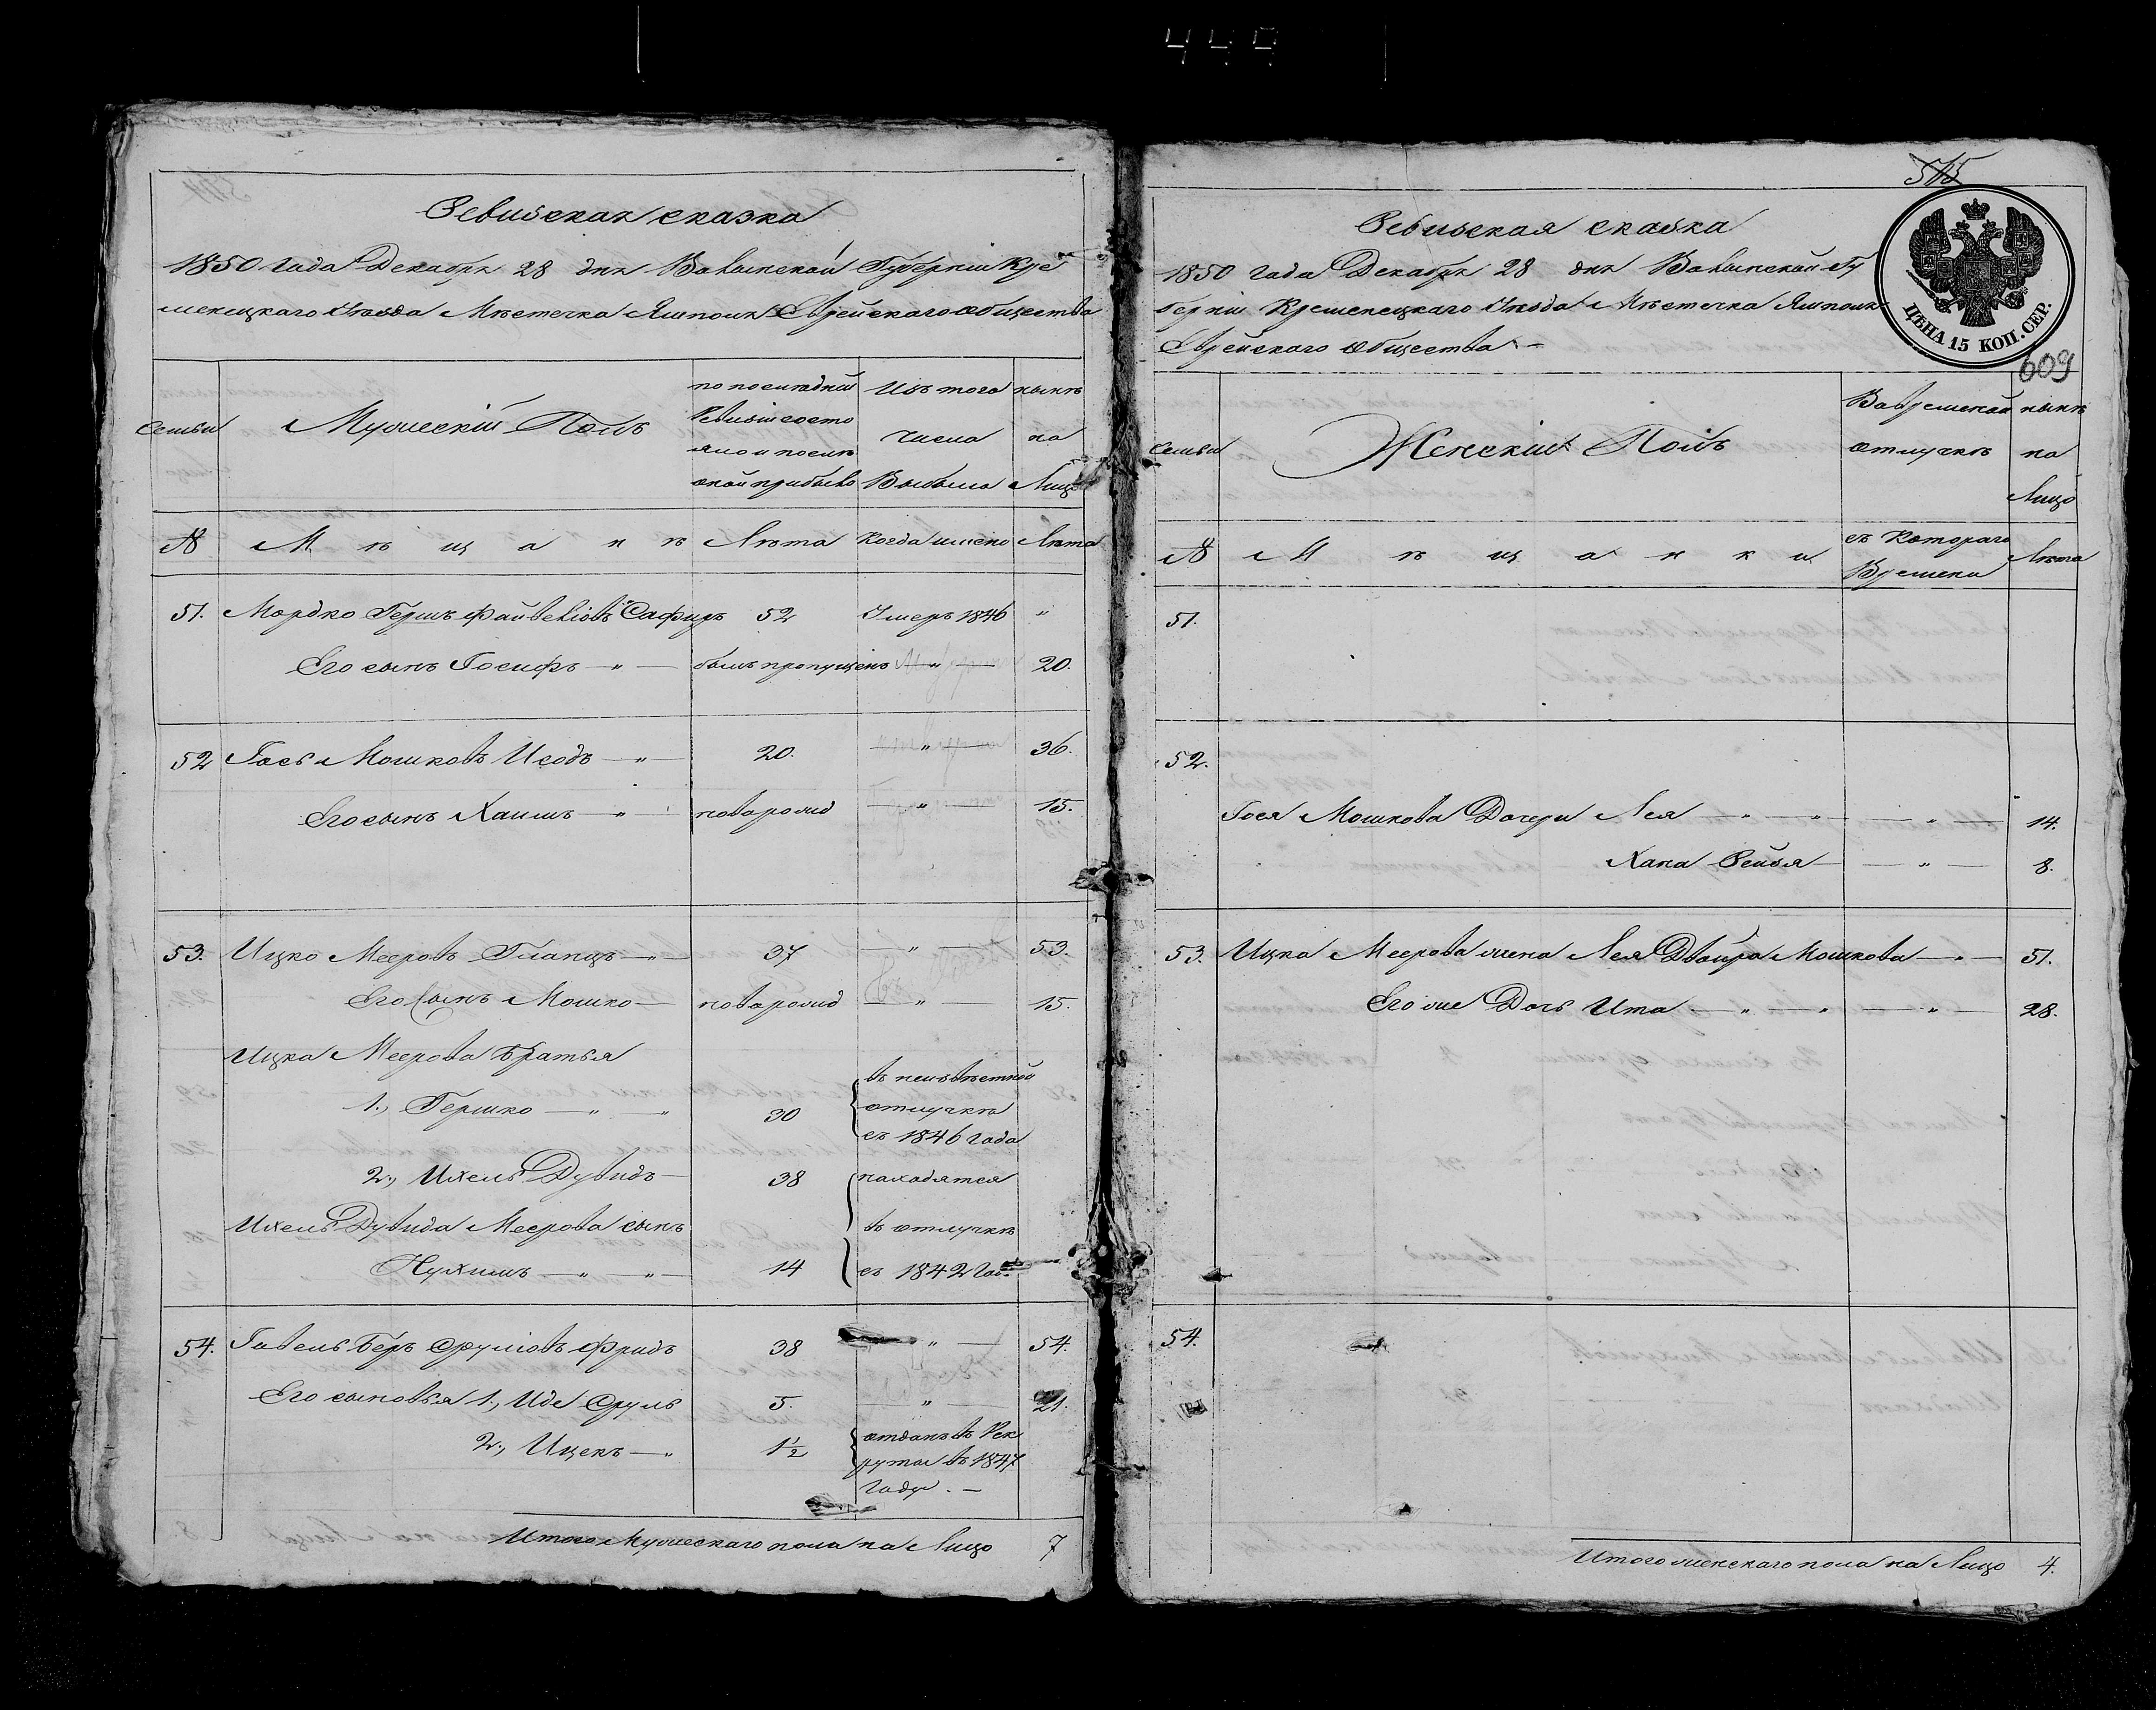 Ревизская сказка
1850 года Декабря 28 дня Волынской Губерніи Кре
менецкаго Уѣзда Мѣстечка Ямполя Еврейскаго общества
Семьи
Мужескій Полъ
по последней Ревизіи состо яло и после оной прибыло
Изъ того числа Выбыло
нынѣ на Лицо
№ Мѣщанѣ Лѣта Когда имено Лѣта
51. Мордко Гершъ Файвелiовъ Сафиръ 52 Умеръ 1846 "
Его сынъ Іосифъ — " — былъ пропущенъ — " — 20.
52 Гось Мошковъ Исодъ — " — 20. — " — 36.
Его сынъ Хаимъ — " — новорожд — " — 15.
53. Ицко Мееровъ Гланцъ — " — 37 — " — 53.
Его Сынъ Мошко — новорожд — " — 15.
Ицка Меерова Братья
1., Гершко — " — " 30 въ неизвѣстной отлучкѣ съ 1846 года
2., Ихель Дувидъ — 38 находятся
Ихель Дувида Меерова сынъ въ отлучкѣ
Нухимъ — " — " — 14 съ 1842 год.
54. Гавель Беръ Сруліовъ Фридъ 38 — " — 54.
Его сыновья 1., Иде Сруль 5. — " — 21.
2., Ицекъ — " 1½ отданъ въ Рек руты въ 1847 году. —
Итого Мужескаго пола на Лицо 7
515
Ревизская сказка
1850 года Декабря 28 дня Волынской Гу
берніи Кременецкаго Уѣзда Мѣстечка Ямполя
Еврейскаго общества —
ЦѢНА 15 КОП. СЕР.
609
Семьи
Женскій Полъ
Во временой отлучкѣ
нынѣ на Лицо
№ Мѣщанки съ Котораго Времени Лѣта
51.
52.
Гося Мошкова Дочери Лея — " — " — " — 14.
Хана Рейзя — " — 8.
53. Ицка Меерова жена Лея Двойра Мошкова — " — 51.
Его же Дочь Ита — " — " — " — 28.
54.
Итого женскаго пола на Лицо 4.